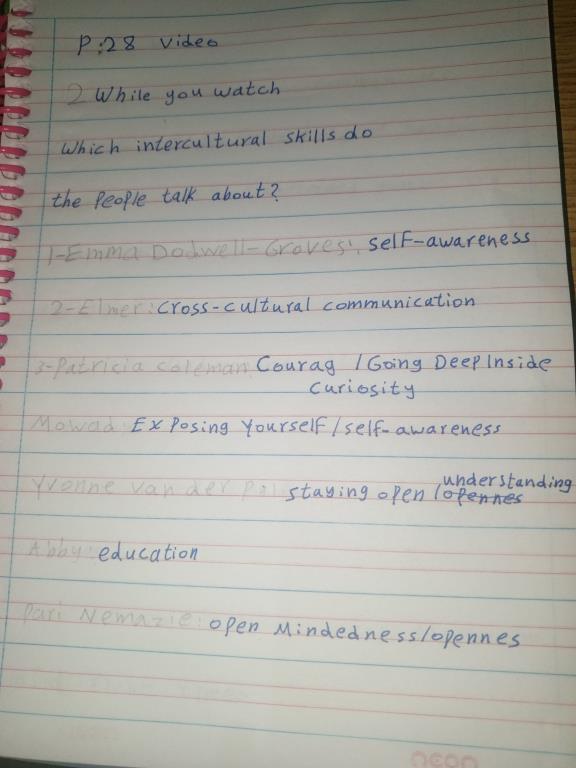 P:28 video
2 While you watch
Which intercultural skills do
the people talk about?
1-Emma Dodwell-Groves: self-awareness
2-Elmer: cross-cultural communication
3-Patricia Coleman Courag / Going Deep Inside
Curiosity
Mowad: Exposing Yourself/self-awareness
Yvonne van der Pol staying open / understanding
opennes
Abby: education
Pari Nemazie: open Mindedness/opennes
neon